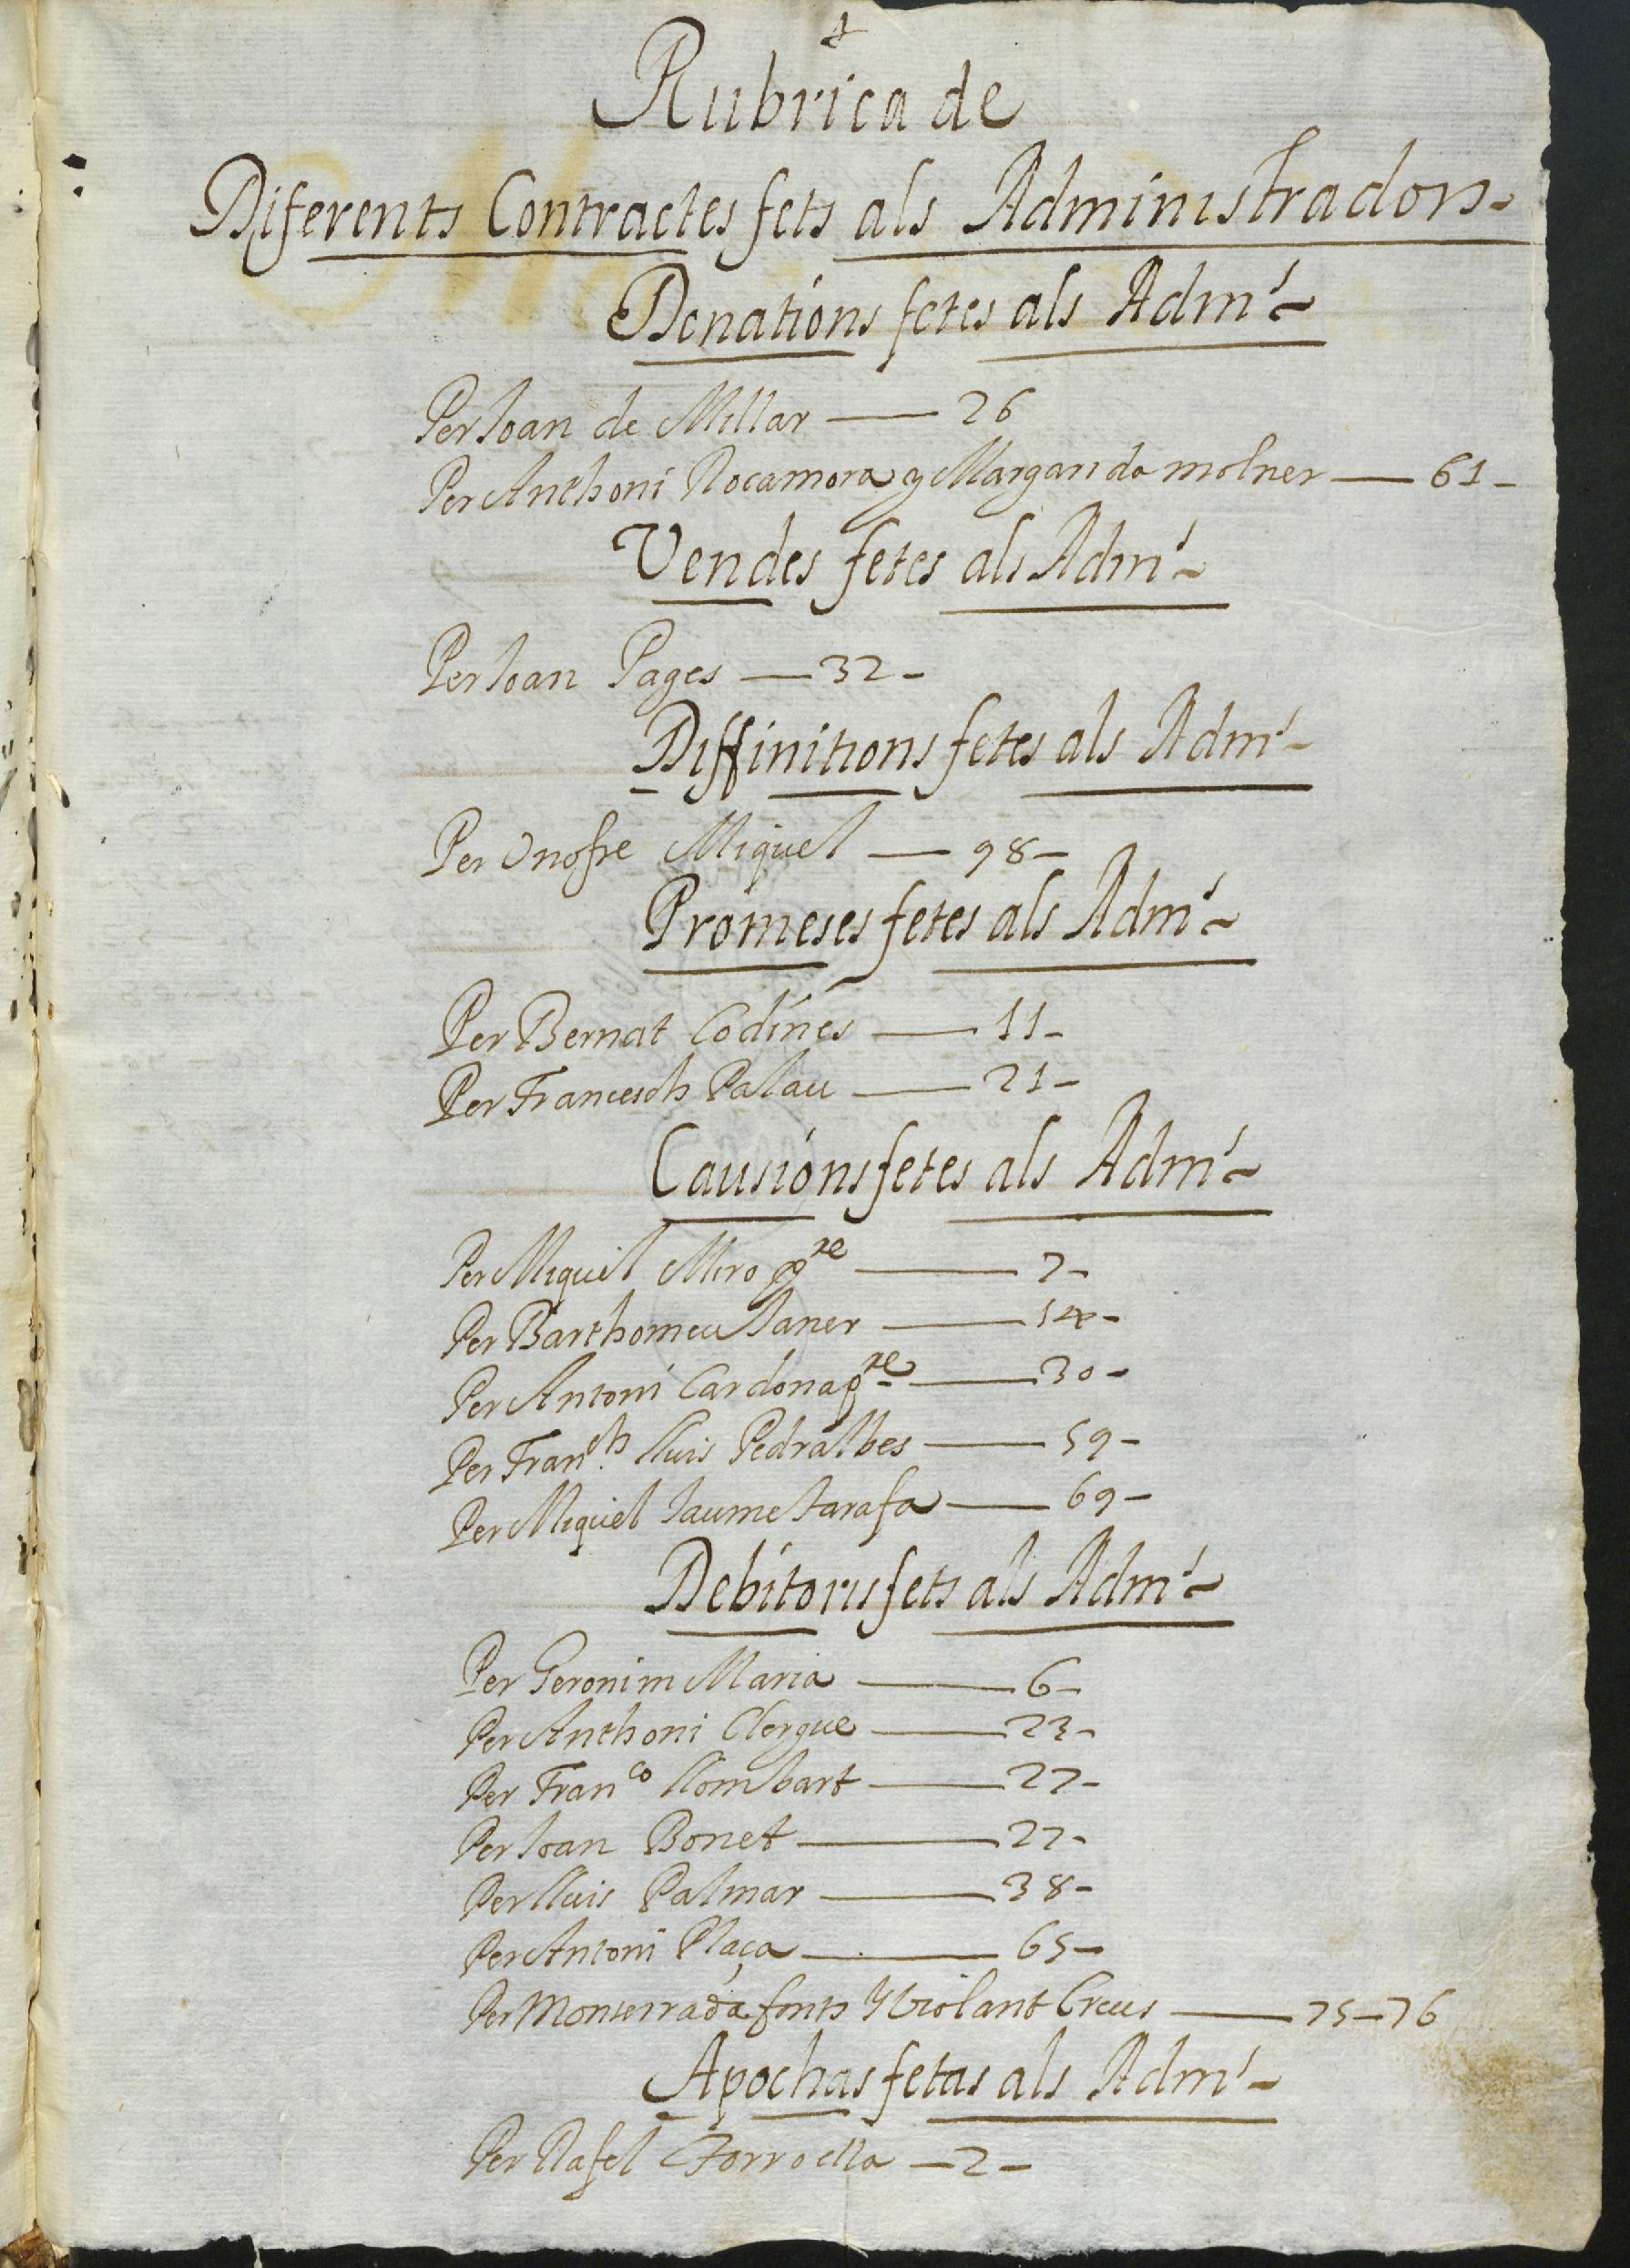 Rubrica de
Diferents Contractes fets als Administradors
Donations fetes als Adm.ʳˢ
Per Joan de Millar — 26
Per Anthoni Rocamora y Margarida molner — 61 -
Vendes fetes als Adm.ʳˢ
Per Joan Pages — 32 -
Diffinitions fetes als Adm.ʳˢ
Per Onofre Miquel — 98 -
Promeses fetes als Adm.ʳˢ
Per Bernat Codines — 11 -
Per Francesch Palau — 21 -
Causions fetes als Adm.ʳˢ
Per Miquel Miro pre — 7 -
Per Barthomeu Janer — 14 -
Per Antoni Cardona pre — 30 -
Per Fran.ch Lluis Pedralbes — 59 -
Per Miquel Jaume Tarafa — 69 -
Debitoris fets als Adm.ʳˢ
Per Geronim Maria — 6 -
Per Anthoni Clergue — 23 -
Per Fran.co Llombart — 27 -
Per Joan Bonet — 27 -
Per Lluis Palmar — 38 -
Per Antoni Plaça — 65 -
Per Monserrada fonts y Violant Creus — 75 - 76
Apochas fetas als Adm.ʳˢ
Per Rafel Torroella — 2 -